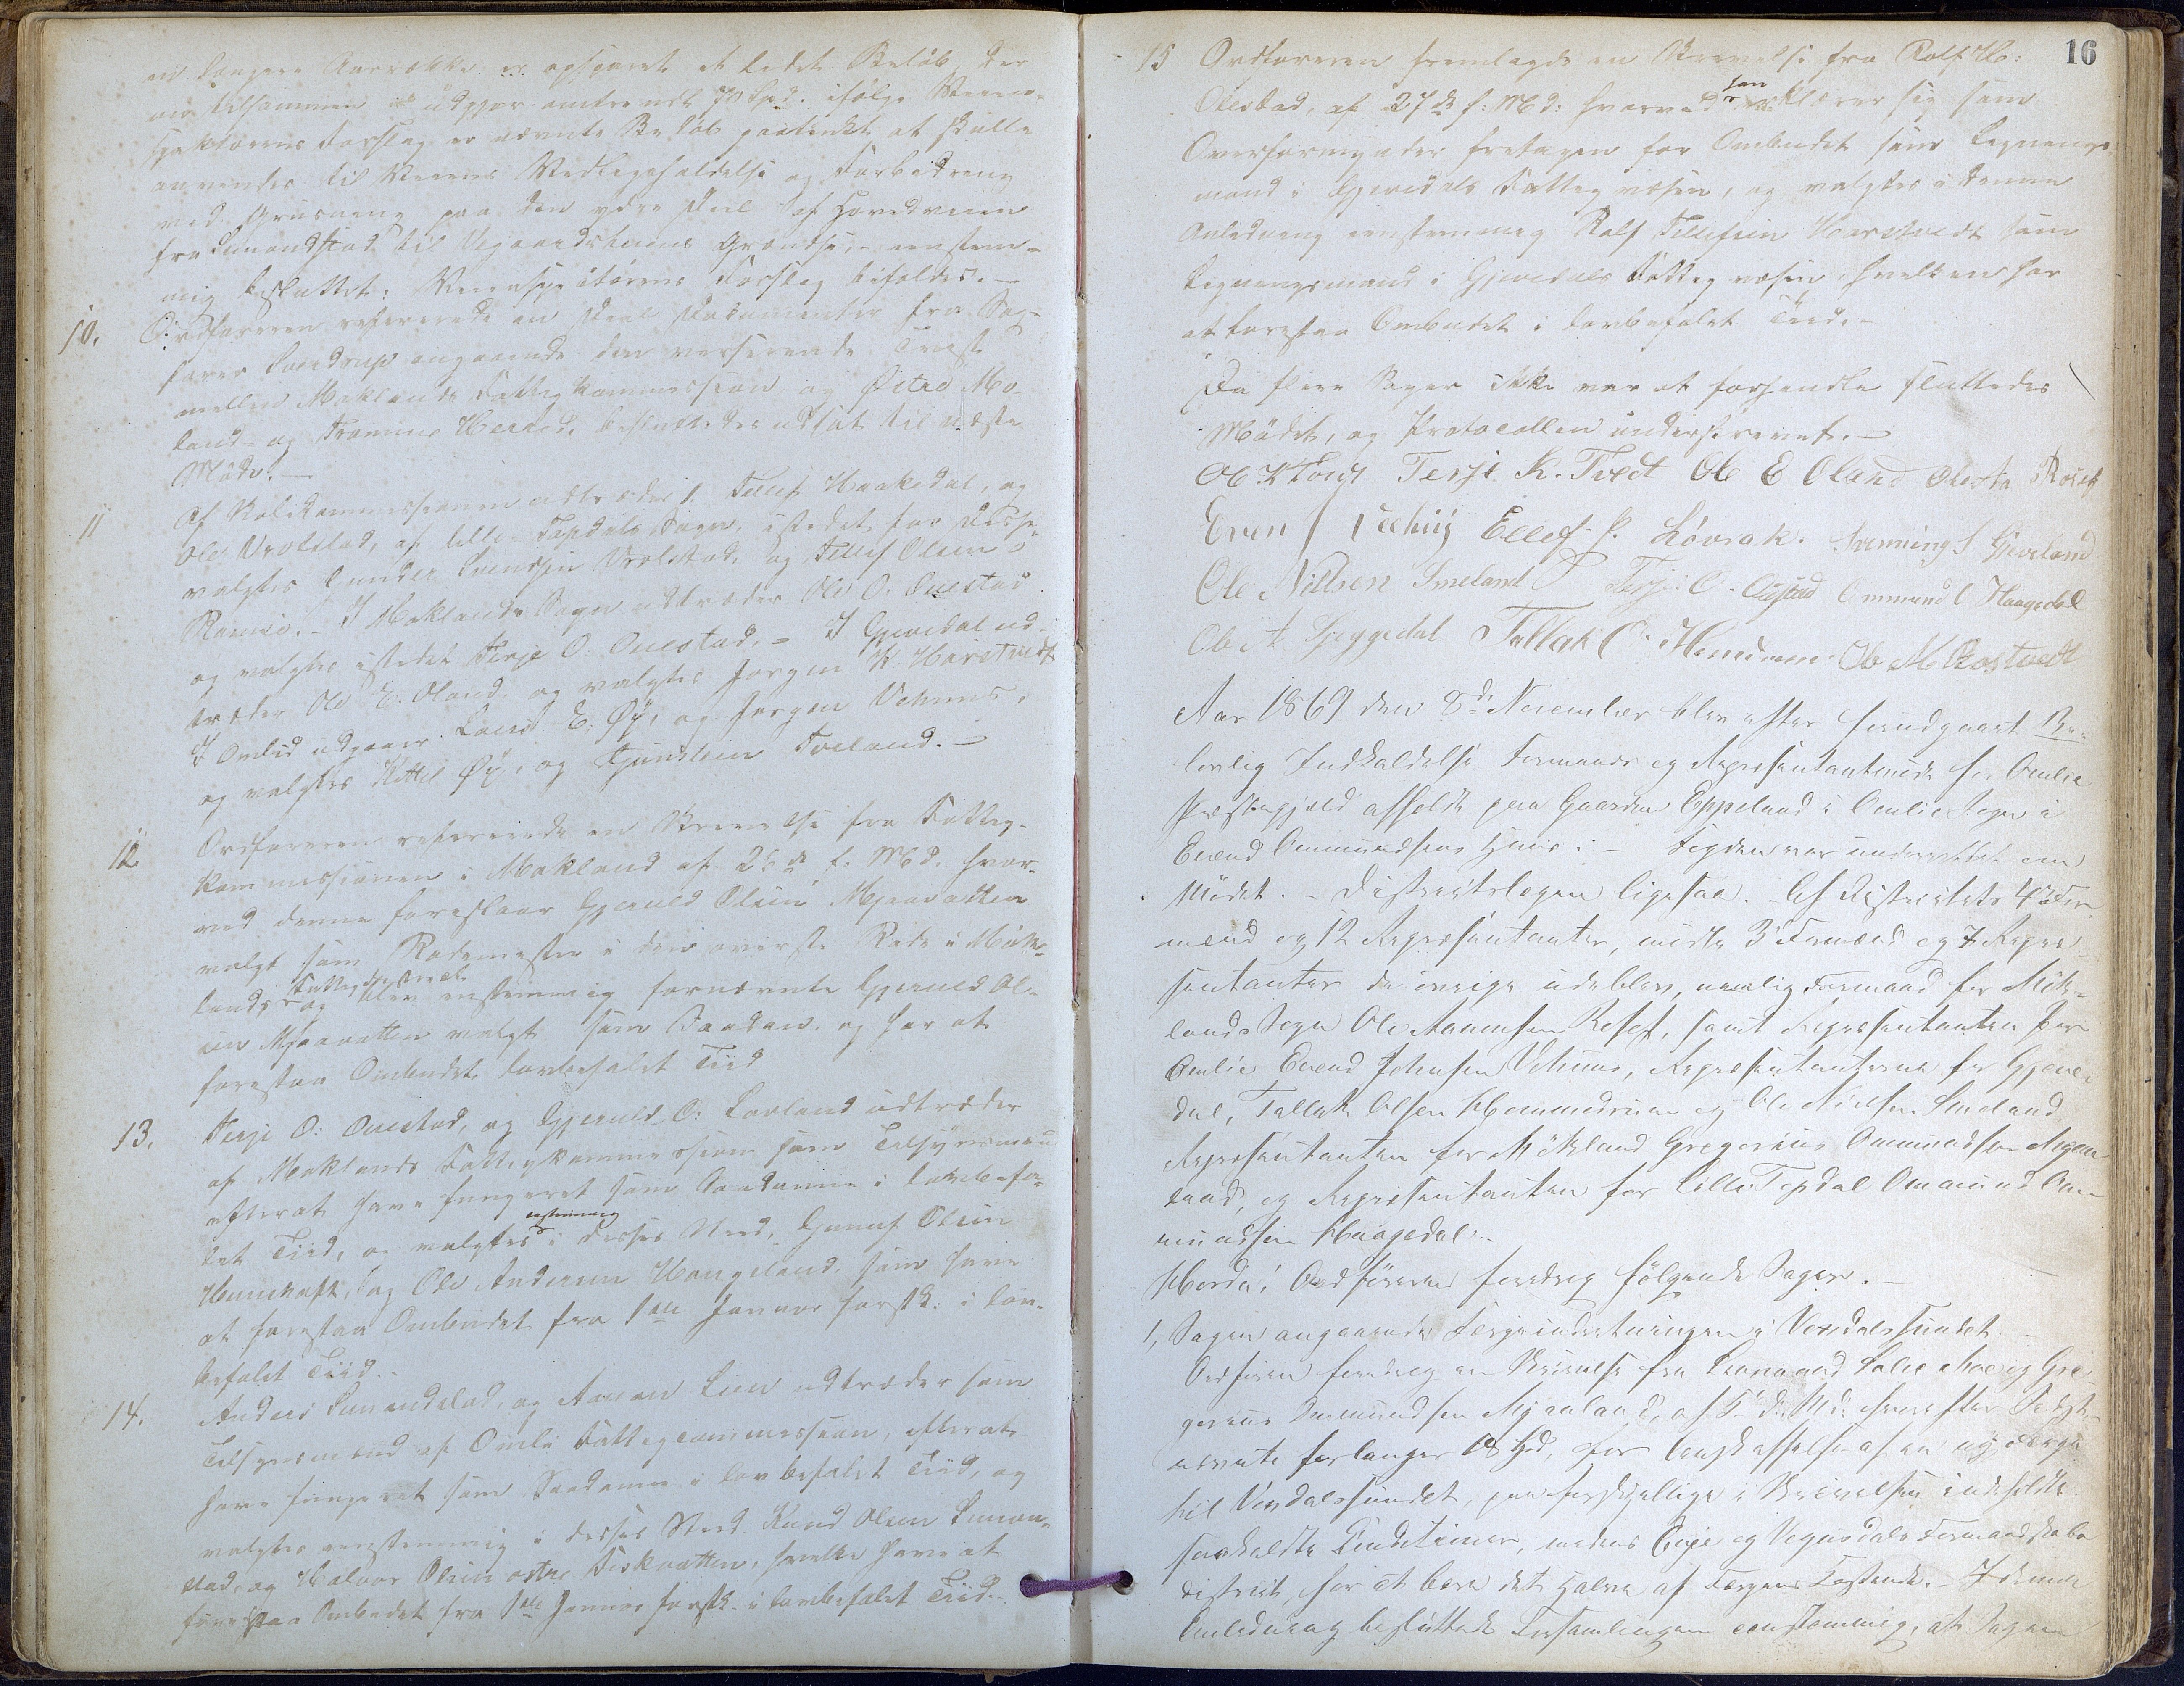 en længere Aarrække er opsparet et ledet Beløb der
nu tilsammen udgjør omtrendt 70 Spd. ifølge Veiin-
spektørens Forslag er nævnte Beløb paatænkt at skulle
anvendes til Veiens Vedligeholdelse og Forbedring
med Grusning paa den ydre Deel af Hovedveien
fra Simonstad til Vegaardsheiens Grændse, - eenstem-
mig besluttet: Veiinspektørens Forslag bifaldes. -
10. Ordføreren refererede en Deel Dokumenter fra Sag-
fører Sverdrup angaaende den verserende Tvist
mellem Moklands Fattigkommission og Østre Mo-
land- og Tromø Herred, besluttedes udsat til næste
Møde. -
11 Af Skolekommissionen udtræder 1. Tellef Haakedal, og
Ole Vrolstad, af lille Topdals Sogn, istedet for disse
valgtes Gunder Svendsen Vrolstad, og Tellef Olsen
Ramse. - I Moklands Sogn udtræder Ole O. Ouestad
og valgtes istedet Terje O. Ouestad. - I Gjevedal ud-
træder Ole E. Oland og valgtes Jørgen K. Harstveit
I Omlid udgaaer Lars E. Øÿ, og Jørgen Vehuus,
og valgtes Kittel Øÿ, og Gunstein Tveland. -
12 Ordføreren refererede en Skrivelse fra Fattig-
kommissionen i Mokland af 26 de f. Md. hvor-
ved denne foreslaar Gjeruld Olsen Mjaavatten
valgt som Rodemester i den øverste Rode i Mok-
lands Fattigdistrict og blev enstemmig fornævnte Gjeruld Ol-
sen Mjaavatten valgt som Saadan og har at
forestaa Ombudet lovbefalet Tiid
13. Terje O: Ouestad, og Gjeruld O: Lauland udtræder
af Moklands Fattigkommission som Tilsynsmænd
efterat have fungeret som Saadanne i lovbefa-
let Tiid, og valgtes eenstemmig i disses Sted, Gunuf Olsen
og Ole Andersen Haugeland, som have
at forestaa Ombudet fra 1ste Januar førstk. i lov-
befalet Tiid. -
14. Anders Simonstad, og Aanon Lien udtræder som
Tilsynsmænd af Omli Fattigcommission, efterat
have fungeret som Saadanne i lovbefalet Tiid, og
valgtes eenstemmig i disses Sted Knud Olsen Simon-
stad, og Halvor Olsen østre Fiskvatten, hvilke have at
forestaa Ombudet fra 1ste Januar førstk. i lovbefalet Tiid. -
16
15 Ordføreren fremlagde en Skrivelse fra Rolf Ue:
Olestad, af 27 de f: Md: hvorved han erklærer sig som
Overformynder fritagen for Ombudet som Ligningsʹ
mand i Gjevedals Fattigvæsen, og valgtes i denne
Anledning eenstemmig Rolf Tellefsen Harstvedt som
Ligningsmand i Gjevedals Fattigvæsen, hvilken har
at forestaa Ombudet i lovbefalet Tiid. -
Da flere Sager ikke var at forhandle sluttedes
Mødet, og Protocollen underskrevet. -
Ol K Terje K. Tvedt Ole E Oland Ole Aa Reset
Even J Vehuus Ellef P. Løvrak. Svennung S Gjeveland
Ole Nillsen Smeland Terje O. Ougstad Ommund O Haagedal
Ole A Sjeggedal Tallak O. Hommdrom Ole M Rostvedt
Aar 1869 den 8de November blev efter forudgaaet Be-
lovlig Indkaldelse Formands og Repræsentantmøde for Omlie
Præstegjeld afholdt paa Gaarden Eppeland i Omlie Sogn i
Evend Ommundsens Huus: - Fogden var underrettet om
Mødet. - Districtslægen ligesaa. - Af Districtets 4 For-
mænd og 12 Repræsentanter, mødte 3 Formænd og 7 Repræ-
sentanter de øvrige udebleve, nemlig Formand for Møk-
lands Sogn Ole Aanonsen Reset, samt Repræsentanten for
Omlie Evend Johnsen Vehuus, Repræsentanterne for Gjeve-
dal, Tallak Olsen Hommedrom og Ole Nielsen Smeland
Repræsentanten for Mökland Gregorius Ommundsen Mjaa-
land, og Repræsentanten for Lille Topdal Ommund Om-
mundsen Haagedal. -
Hvorda: Ordføreren foredrog følgende Sager. -
1, Sagen angaaende Færgeindretningen i Verdalssundet. -
Ordføreren foredrog en Skrivelse fra Lensmand og Gre-
gorius Ommundsen Mjaaland, af d: Md: hvorefter
nævnte forlanger 18 Spd, for Anskaffelse af en ny Færge
til Verdalssundet, paa forskjellige i Skrivelsen indeholdte
saakaldte Conditioner, medens Evje og Vegusdals Formandskabs
district, har at bære det Halve af Færgens Kostende. - I denne
Anledning besluttede Forsamlingen eenstemmig, at Sagen